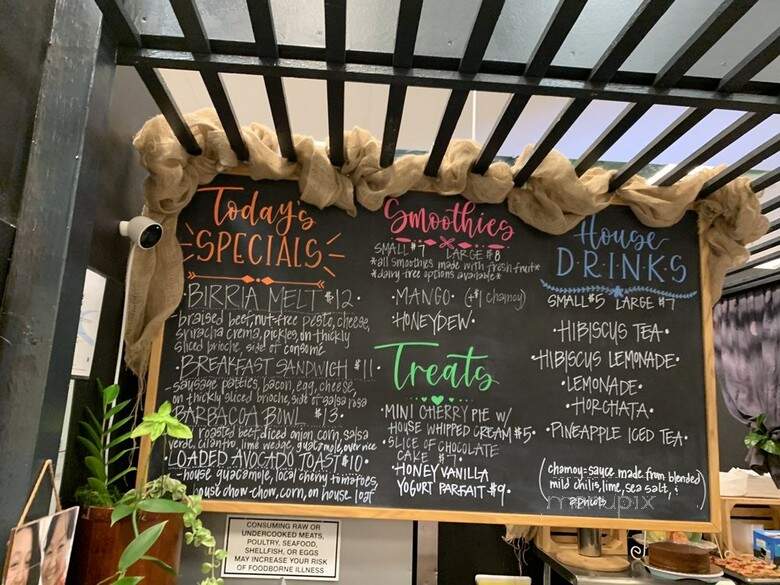 Today's
SPECIALS
• BIRRIA MELT $12 •
- braised beef, nut-free pesto, cheese,
sriracha crema, pickles, on thickly
sliced brioche, side of consomé
• BREAKFAST SANDWICH $11 •
- sausage patties, bacon, egg, cheese,
on thickly sliced brioche, side of salsa rosa
• BARBACOA BOWL • $13 •
roasted beef, diced onion, corn, salsa
verde, cilantro, lime wedge, guacamole, over rice
• LOADED AVOCADO TOAST $10 •
- house guacamole, local cherry tomatoes,
house chow-chow, corn, on house loaf
Smoothies
SMALL $7 LARGE $8
*all smoothies made with fresh fruit*
*dairy-free options available*
• MANGO • (+$1 chamoy)
• HONEYDEW •
Treats
• MINI CHERRY PIE W/
HOUSE WHIPPED CREAM $5 •
• SLICE OF CHOCOLATE
CAKE $7 •
• HONEY VANILLA
YOGURT PARFAIT $9 •
House
D•R•I•N•K•S
SMALL $5 LARGE $7
• HIBISCUS TEA •
• HIBISCUS LEMONADE •
• LEMONADE •
• HORCHATA •
• PINEAPPLE ICED TEA •
(chamoy - sauce made from blended
mild chilis, lime, sea salt, &
apricots)
CONSUMING RAW OR
UNDERCOOKED MEATS,
POULTRY, SEAFOOD,
SHELLFISH, OR EGGS
MAY INCREASE YOUR RISK
OF FOODBORNE ILLNESS